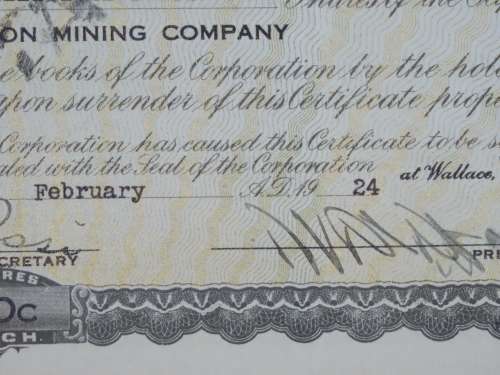 Shares of the
ON MINING COMPANY
e books of the Corporation by the hol
upon surrender of this Certificate prope
Corporation has caused this Certificate to be s
aled with the Seal of the Corporation at Wallace,
February A.D. 19 24
CRETARY PRE
RES
0c
CH.